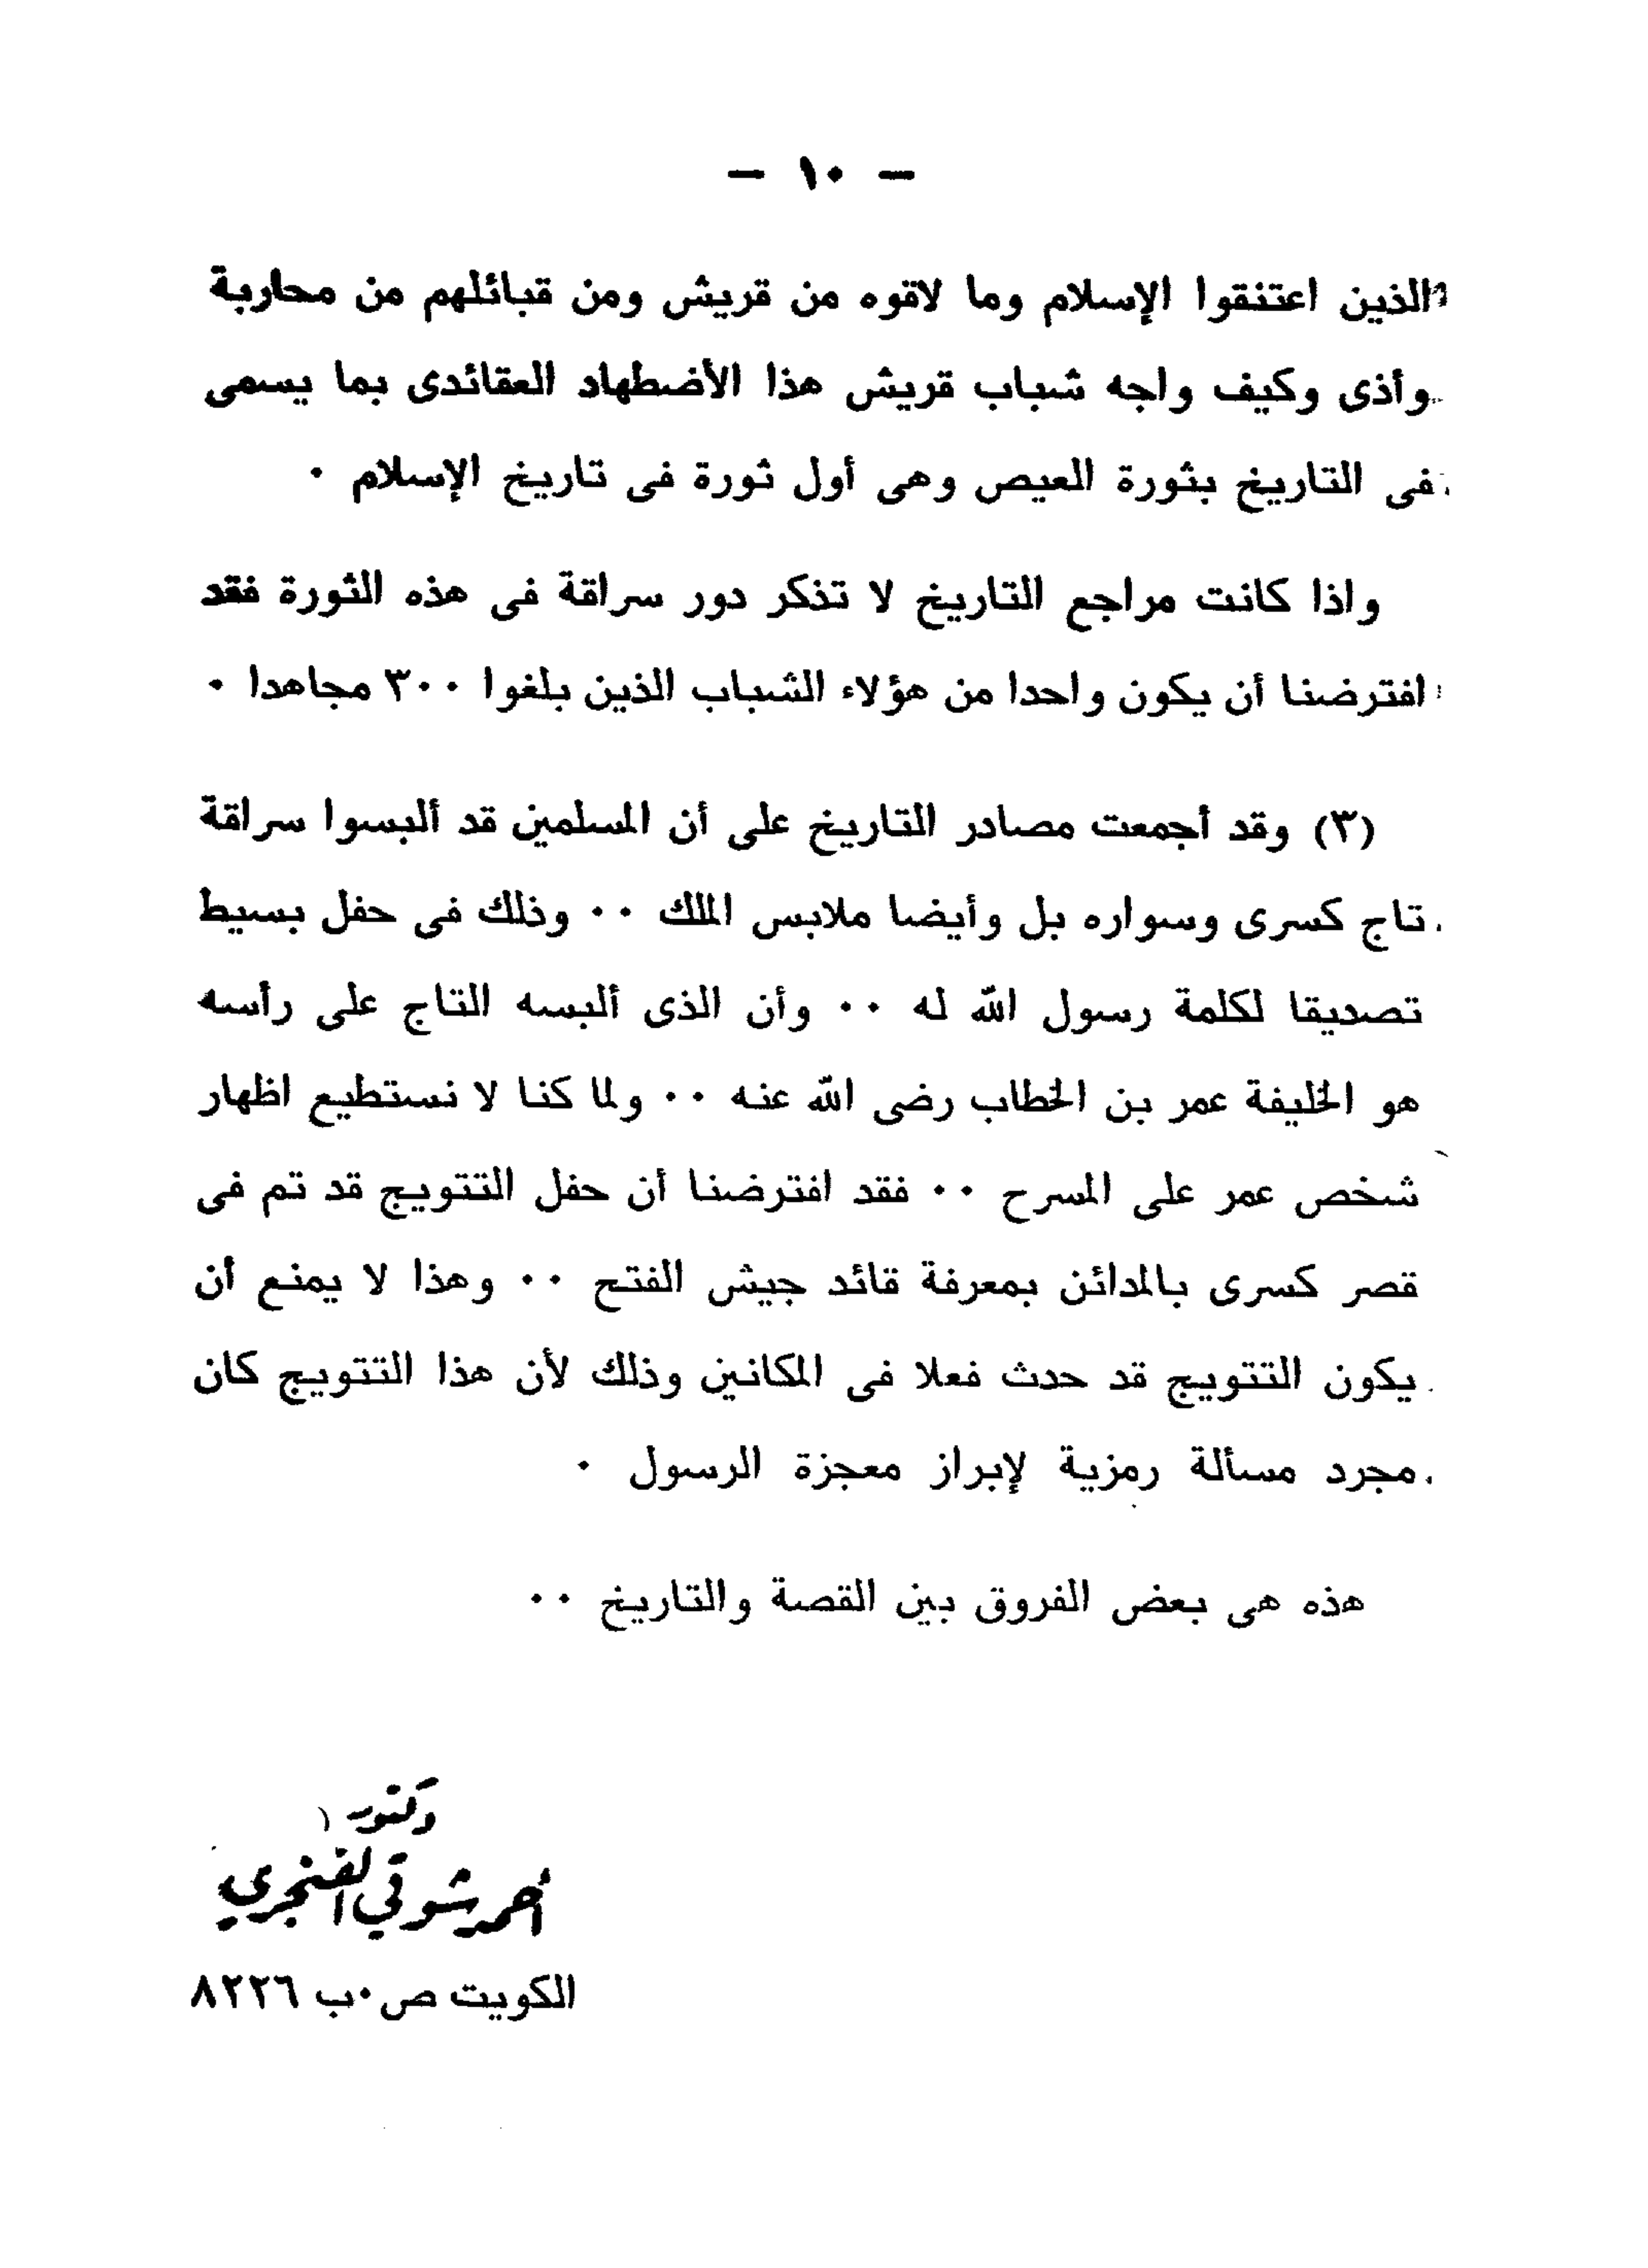 — ١٠ —
الذين اعتنقوا الإسلام وما لاقوه من قريش ومن قبائلهم من محاربة
وأذى وكيف واجه شباب قريش هذا الأضطهاد العقائدى بما يسمى
فى التاريخ بثورة العيص وهى أول ثورة فى تاريخ الإسلام ٠
واذا كانت مراجع التاريخ لا تذكر دور سراقة فى هذه الثورة فقد
افترضنا أن يكون واحدا من هؤلاء الشباب الذين بلغوا ٣٠٠ مجاهدا ٠
(٣) وقد أجمعت مصادر التاريخ على أن المسلمين قد ألبسوا سراقة
تاج كسرى وسواره بل وأيضا ملابس الملك ٠٠ وذلك فى حفل بسيط
تصديقا لكلمة رسول الله له ٠٠ وأن الذى ألبسه التاج على رأسه
هو الخليفة عمر بن الخطاب رضى الله عنه ٠٠ ولما كنا لا نستطيع اظهار
شخص عمر على المسرح ٠٠ فقد افترضنا أن حفل التتويج قد تم فى
قصر كسرى بالمدائن بمعرفة قائد جيش الفتح ٠٠ وهذا لا يمنع أن
يكون التتويج قد حدث فعلا فى المكانين وذلك لأن هذا التتويج كان
مجرد مسألة رمزية لإبراز معجزة الرسول ٠
هذه هى بعض الفروق بين القصة والتاريخ ٠٠
دكتور
أحمد شوقي الفنجري
الكويت ص٠ب ٨٢٢٦